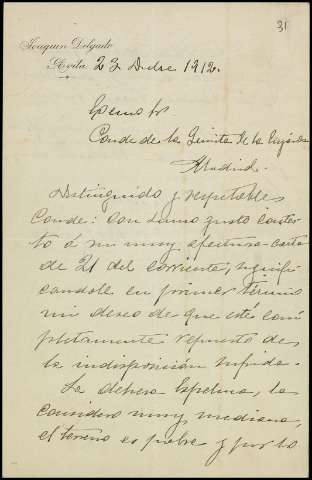 31
Joaquin Delgado
Avila 23 Dcbre 1912.
Excmo Sr
Conde de la
Madrid.
Distinguido y respetable
Conde: con sumo gusto contes-
to á su muy afectuosa carta
de 21 del corriente, signifi
candole en primer término
mi deseo de que esté com
pletamente repuesto de
la indisposición sufrida.
La dehesa Espelina, la
considero muy mediana,
el terreno es pobre y por lo